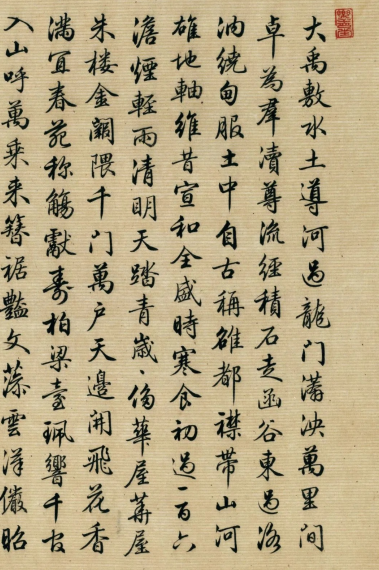 大禹敷水土導河過龍門泱萬里間
卓為羣瀆尊流經積石走函谷東過洛
汭繞甸服土中自古稱雒都襟帶山河
雄地軸維昔宣和全盛時寒食初過一百六
澹煙輕雨清明天踏青歲々華屋華屋
朱楼金闕隈千門萬戶天邊開飛花香
滿宜春苑称觴獻壽柏梁臺珮響千官
入山呼萬乗来簪裾豔文藻雲漢儼昭